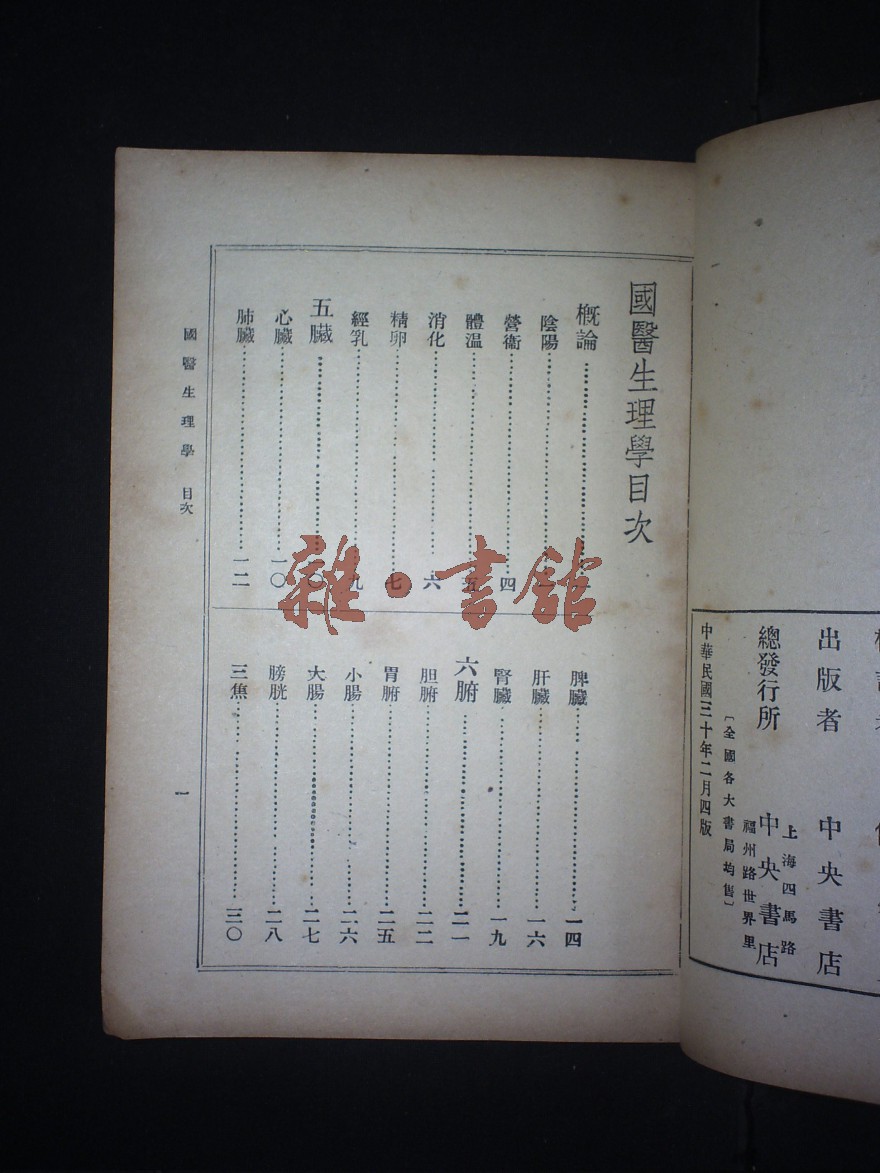 國醫生理學目次
概論……一
陰陽……一
營衞……四
體温……五
消化……六
精卵……七
經乳……九
五臟……一〇
心臟……一〇
肺臟……一二
脾臟……一四
肝臟……一六
腎臟……一九
六腑……二一
胆腑……二二
胃腑……二五
小腸……二六
大腸……二七
膀胱……二八
三焦……三〇
國醫生理學 目次
一
出版者 中央書店
上海四馬路
福州路世界里
總發行所 中央書店
〔全國各大書局均售〕
中華民國三十年二月四版
雜·書館